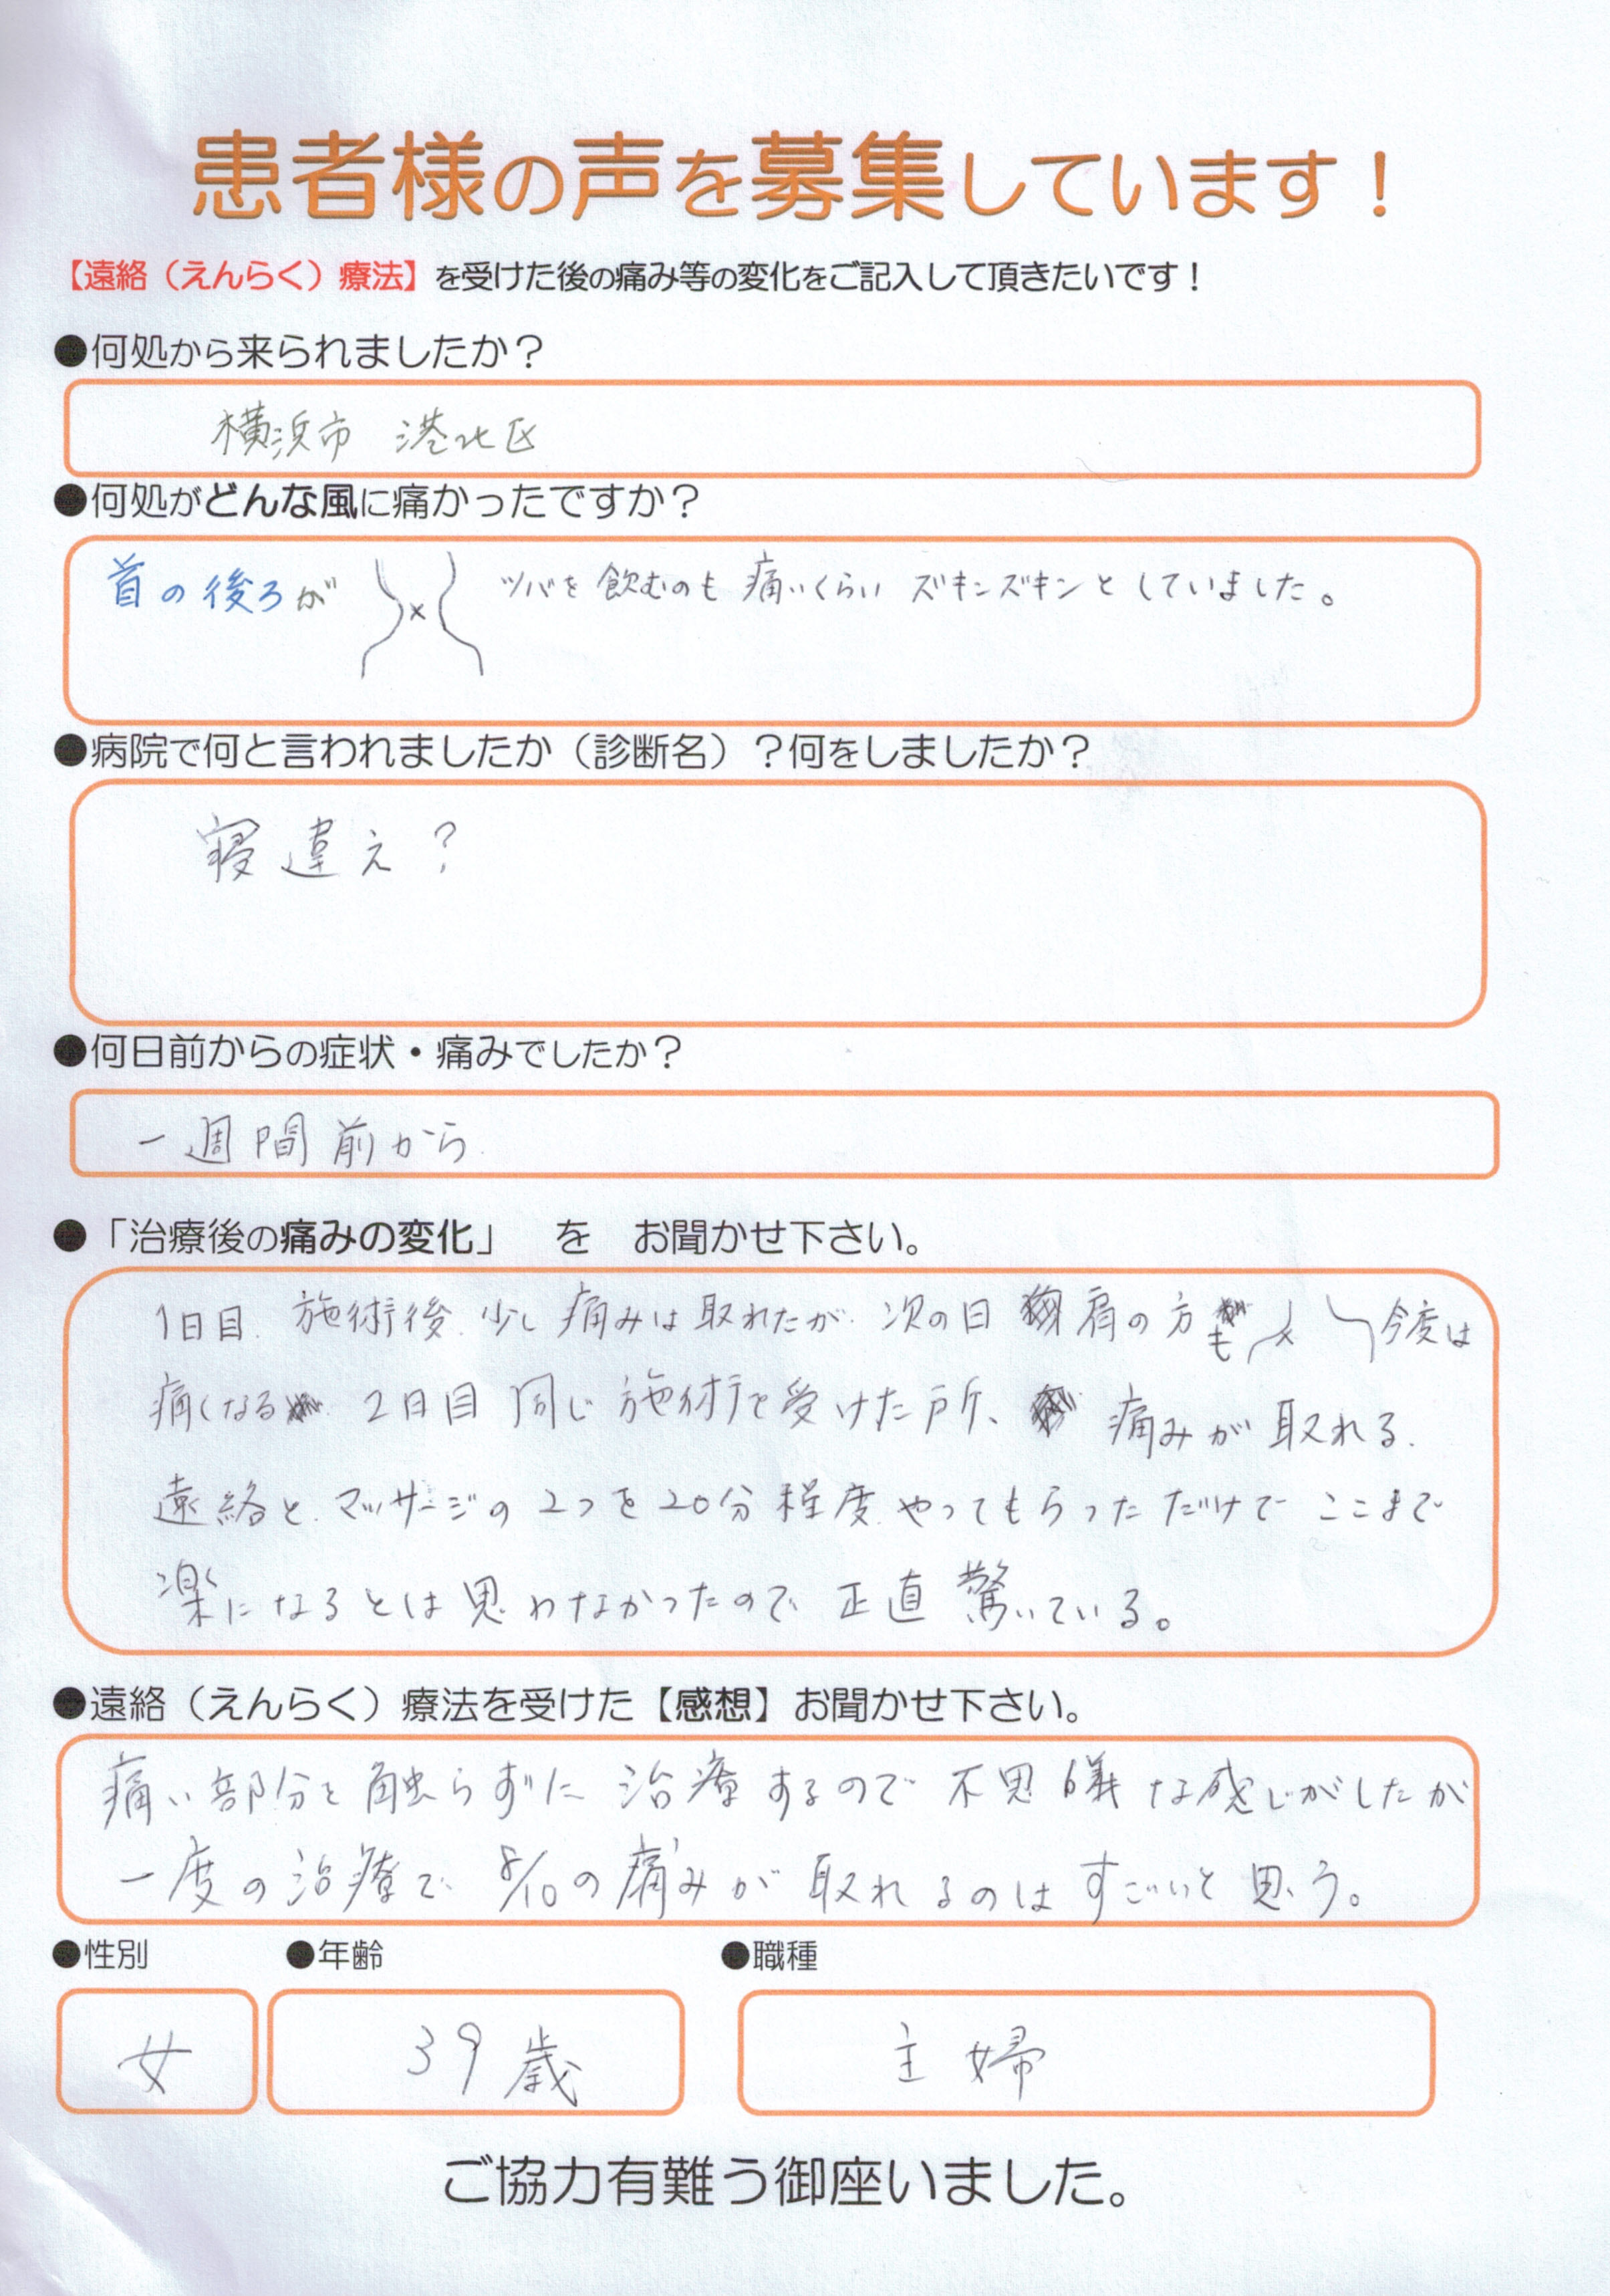 患者様の声を募集しています！
【遠絡（えんらく）療法】を受けた後の痛み等の変化をご記入して頂きたいです！
●何処から来られましたか？
横浜市 港北区
●何処がどんな風に痛かったですか？
首の後ろが × ツバを飲むのも痛いくらいズキンズキンとしていました。
●病院で何と言われましたか（診断名）？何をしましたか？
寝違え？
●何日前からの症状・痛みでしたか？
一週間前から
●「治療後の痛みの変化」 を お聞かせ下さい。
1日目 施術後 少し痛みは取れたが 次の日 肩の方も × 今度は
痛くなる 2日目 同じ施術を受けた所、痛みが取れる。
遠絡とマッサージの2つを20分程度やってもらっただけでここまで
楽になるとは思わなかったので正直驚いている。
●遠絡（えんらく）療法を受けた【感想】お聞かせ下さい。
痛い部分を触らずに治療するので不思議な感じがしたが
一度の治療で8/10の痛みが取れるのはすごいと思う。
●性別 ●年齢 ●職種
女 39歳 主婦
ご協力有難う御座いました。